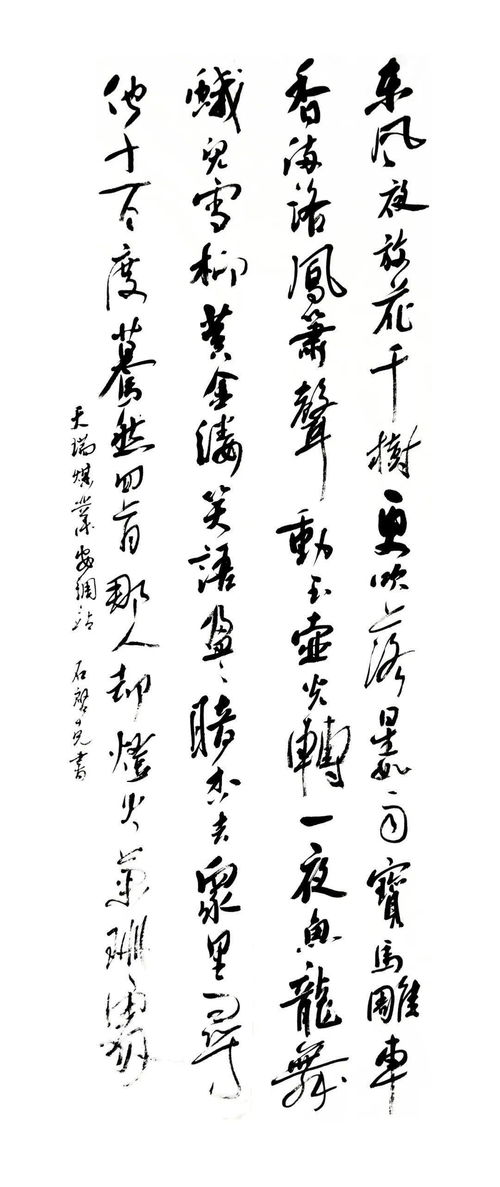 東風夜放花千樹更吹落星如雨寶馬雕車
香滿路鳳簫聲動玉壺光轉一夜魚龍舞
蛾兒雪柳黃金縷笑語盈盈暗香去眾里尋
他千百度驀然回首那人却燈火闌珊處
天瑞煤業 書